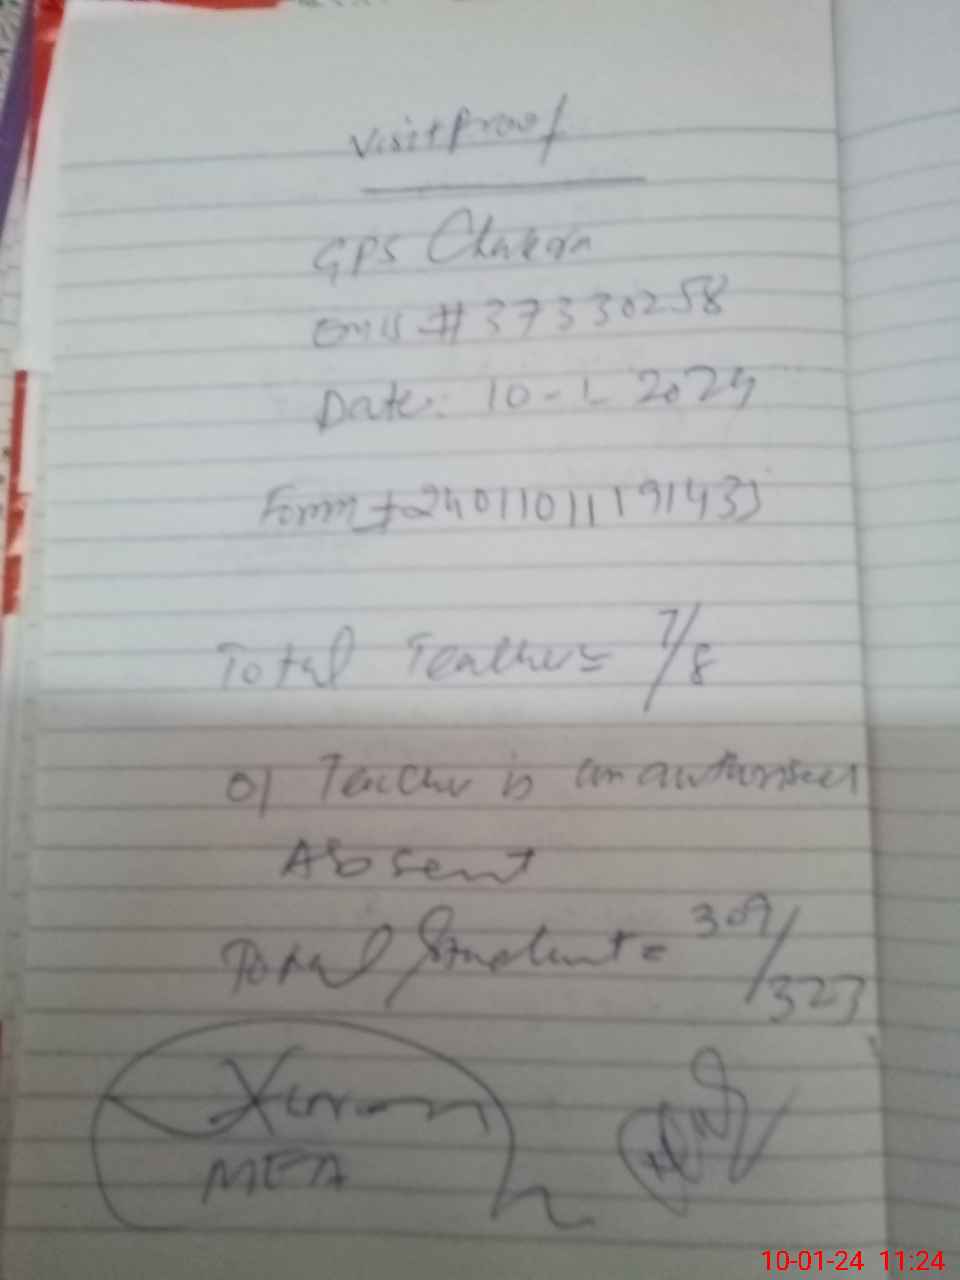 Visit Proof
GPS Chakra
EMIS # 37330258
Date: 10-1-2024
Form # 24011011191433
Total Teacher = 7/8
01 Teacher is unauthorised
Absent
Total Student = 309/323
MEA
10-01-24 11:24